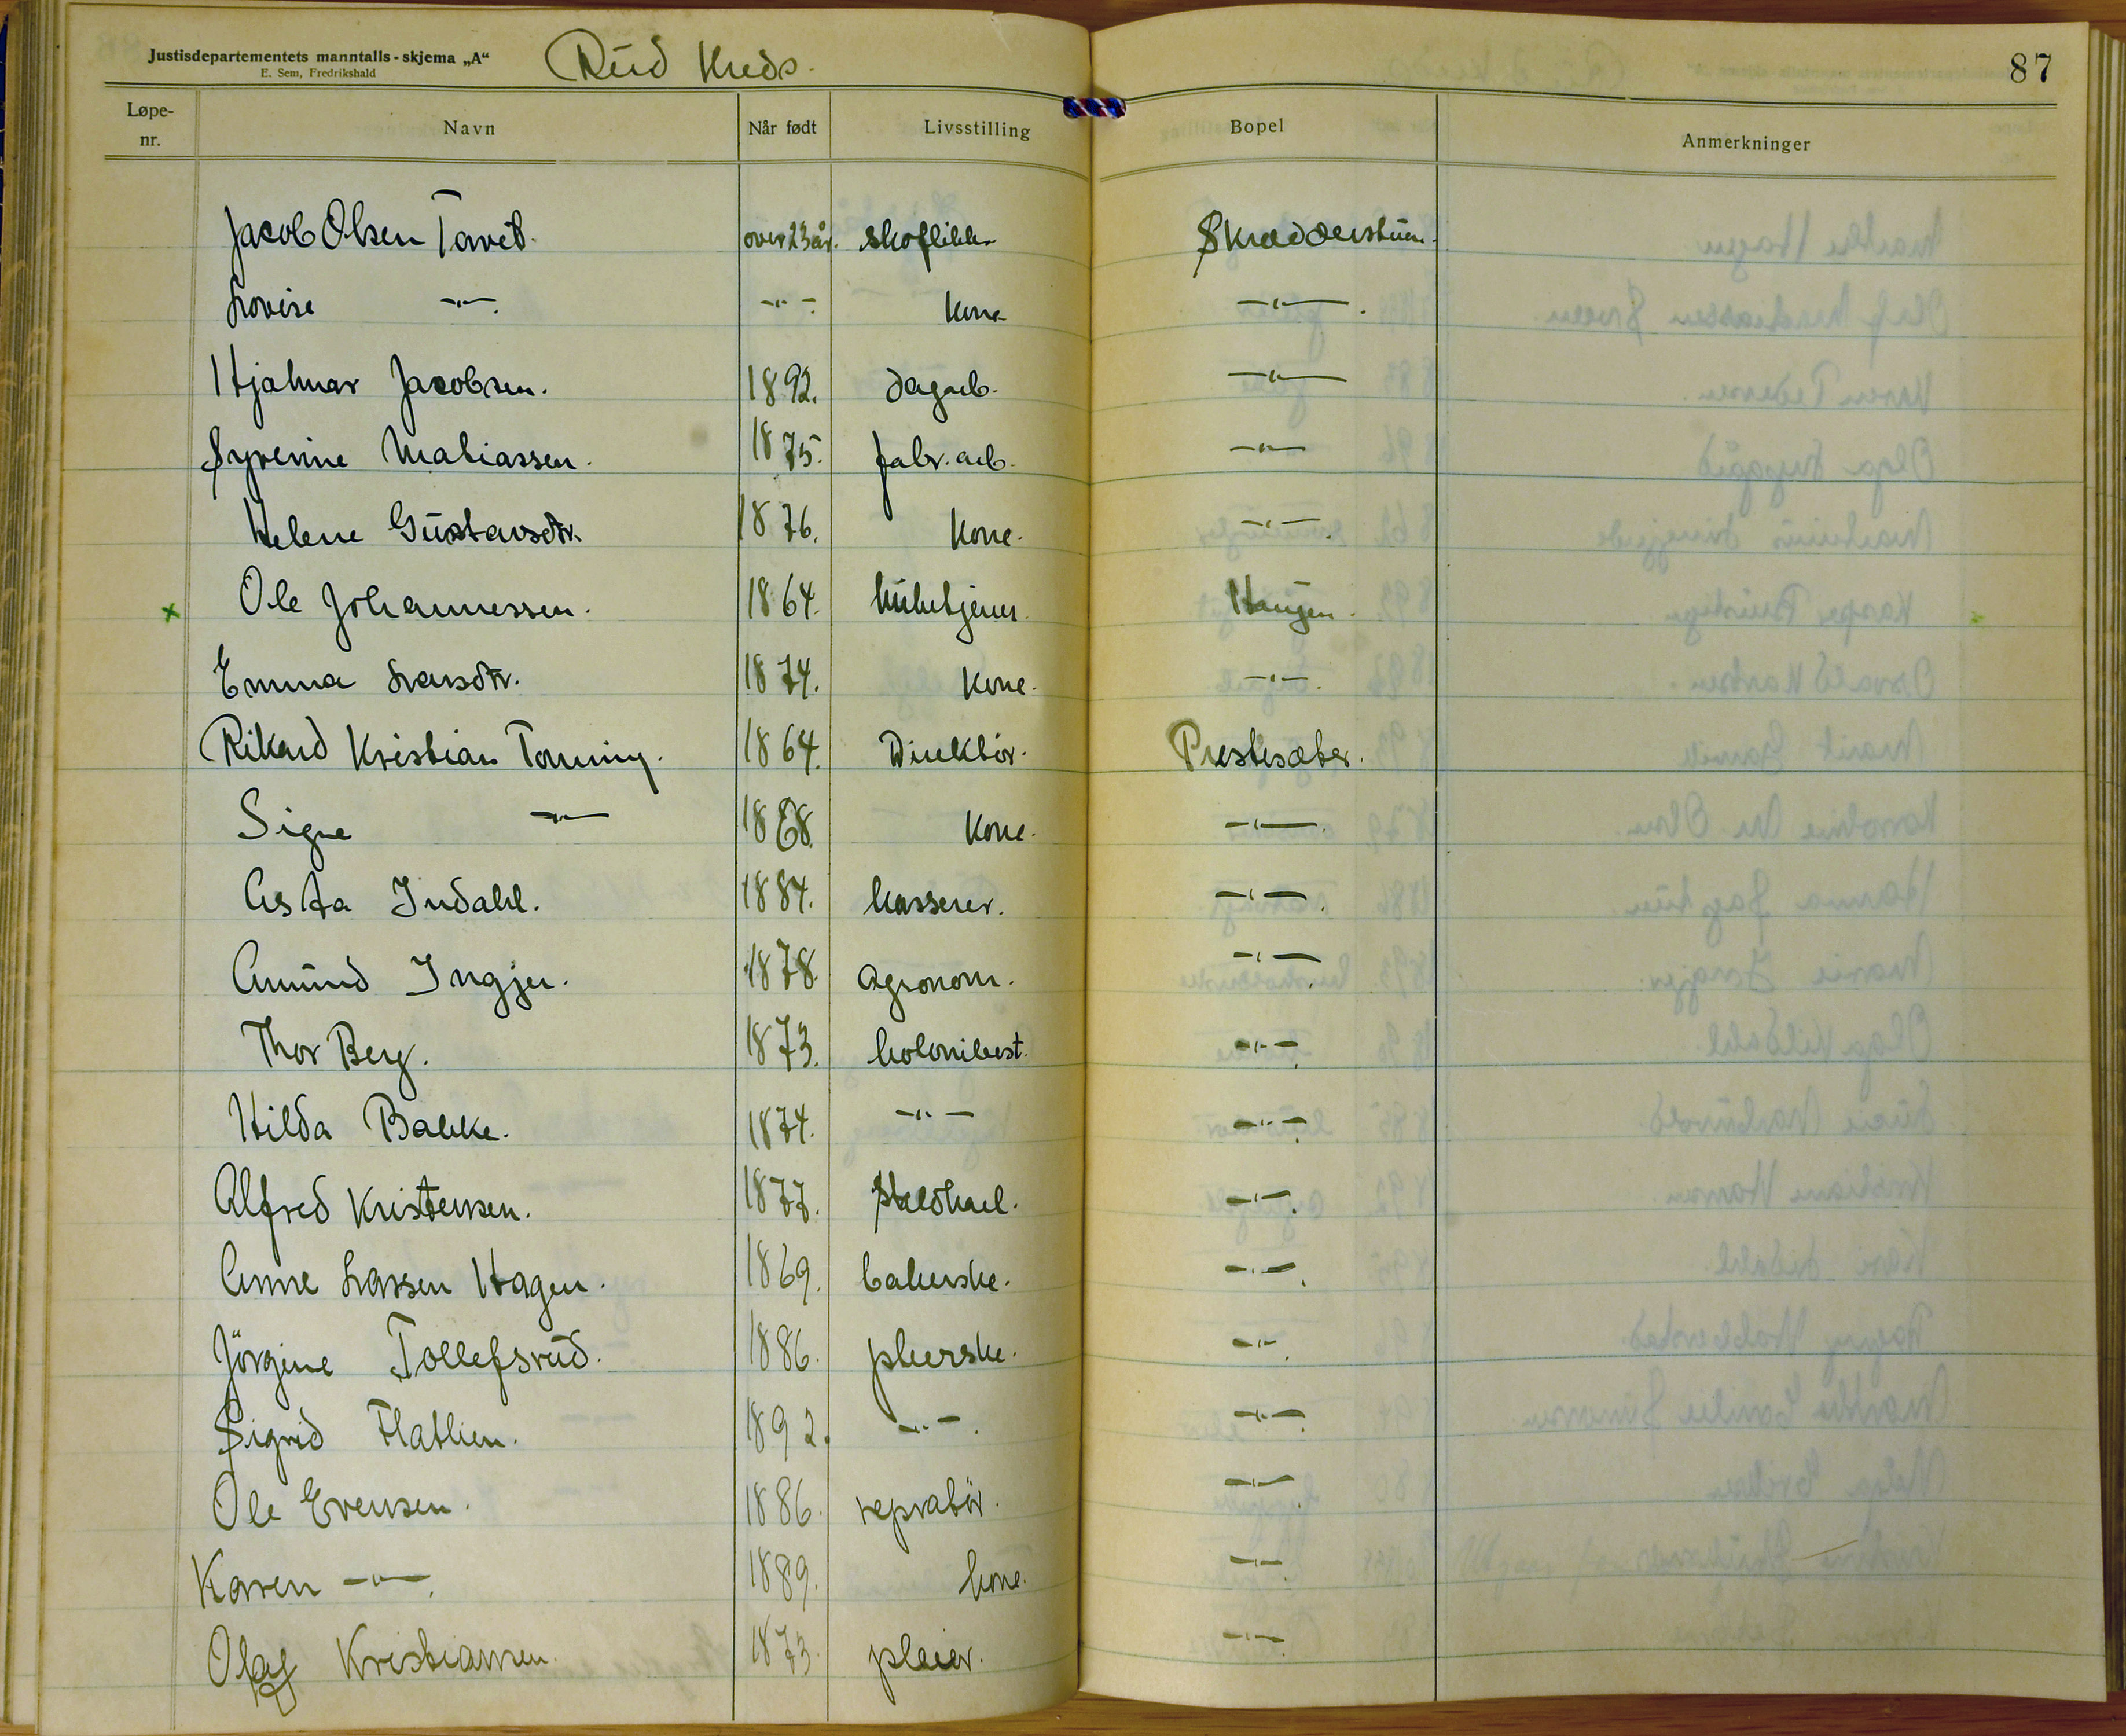 Justisdepartementets manntalls-skjema „A“
E. Sem, Fredrikshald
Rúd Kreds.
87
Løpe-nr. Navn Når født Livsstilling Bopel Anmerkninger
Jacob Olsen Tavet. over 23 år. skoflikker Skrædderstúen.
Lovise —"—. —"—. Kone —"—.
Hjalmar Jacobsen. 1892. dagarb. —"—
Syverine Matiassen. 1875. fabr. arb. —"—
Helene Gústavsdtr. 1876. Kone. —"—.
x Ole Johannessen. 1864. Haúgen.
Emma Larsdtr. 1874. Kone. —"—.
Rikard Kristian Tonning. 1864. Direktör. Prestesæter.
Signe —"— 1868. Kone. —"—.
Asta Indahl. 1884. kasserer. —"—.
Amúnd Ingjer. 1878. agronom. —"—.
Thor Berg. 1873. kolonibest. —"—.
Hilda Bakke. 1874. —"— —"—.
Alfred Kristensen. 1877. staldkarl. —"—.
Anne Larsen Hagen. 1869. bakerske. —"—.
Jörgine Tollefsrúd. 1886. pleierske. —"—.
Sigrid Flatlien. 1892. —"—. —"—.
Ole Evensen. 1886. repratör. —"—.
Karen —"—. 1889. kone. —"—.
Olaf Kristiansen. 1873. pleier. —"—.